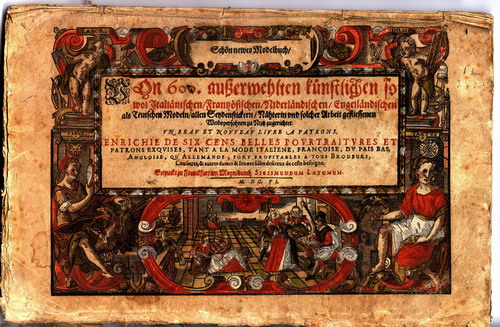 Schön newes Modelbuch/
Von 600. außerwehlten künstlichen so
wol Italiänischen/Frantzösischen/Niderländischen/Engeländischen
als Teutschen Modeln/allen Seydenstickern/Nähterin vnd solcher Arbeit geflissenen
Weibspersohnen zu Nutz zugerichtet.
VN BEAV ET NOVVEAV LIVRE A PATRONS,
ENRICHIE DE SIX CENS BELLES POVRTRAITVRES ET
PATRONS EXQVISES, TANT A LA MODE ITALIENE, FRANCOISE, DV PAIS BAS,
ANGLOISE, QV'ALLEMANDE, FORT PROFITABLES A TOVS BRODEVRS,
& autres dames & de ceste besoigne.
Getruckt zu Franckfurt am Mayn/durch SIGISMVNDVM LATOMVM.
M. DC. VI.